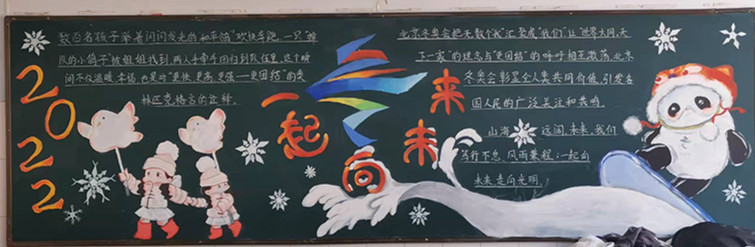 2022
数百名孩子举着闪闪发光的和平鸽"欢快奔跑,一只"掉
队的小鸽子"被姐姐找到,两人手牵手回归到队伍里,这个瞬
间不仅温暖幸福,也是对"更快、更高、更强——更团结"的奥
林匹克格言的诠释。
一起向未来
北京冬奥会把无数个"我"汇聚成"我们",让"世界大同,天
下一家"的理念与"更团结"的呼吁相互激荡,北京
冬奥会彰显全人类共同价值,引发各
国人民的广泛关注和共鸣。
山海 远阔,未来,我们
笃行不怠,风雨兼程;一起向
未来,走向光明。